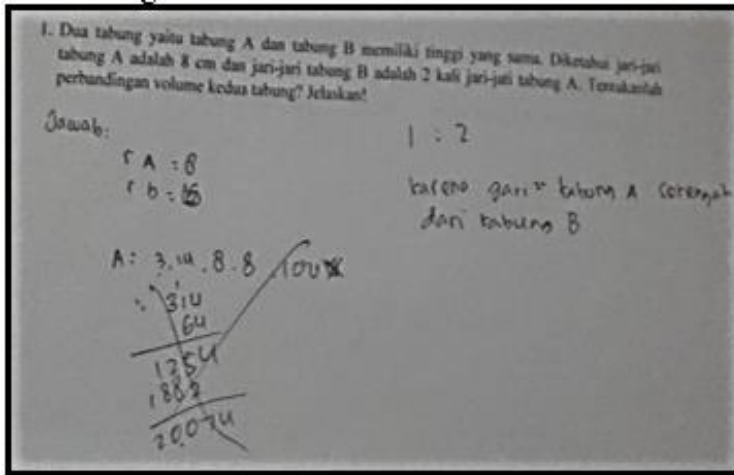 1. Dua tabung yaitu tabung A dan tabung B memiliki tinggi yang sama. Diketahui jari-jari
tabung A adalah 8 cm dan jari-jari tabung B adalah 2 kali jari-jari tabung A. Tentukanlah
perbandingan volume kedua tabung? Jelaskan!
Jawab:
r A = 8
r b =
A: 3,14 . 8 . 8
314
64
1254
20074
1 : 2
karena jari" tabung A setengah
dari tabung B